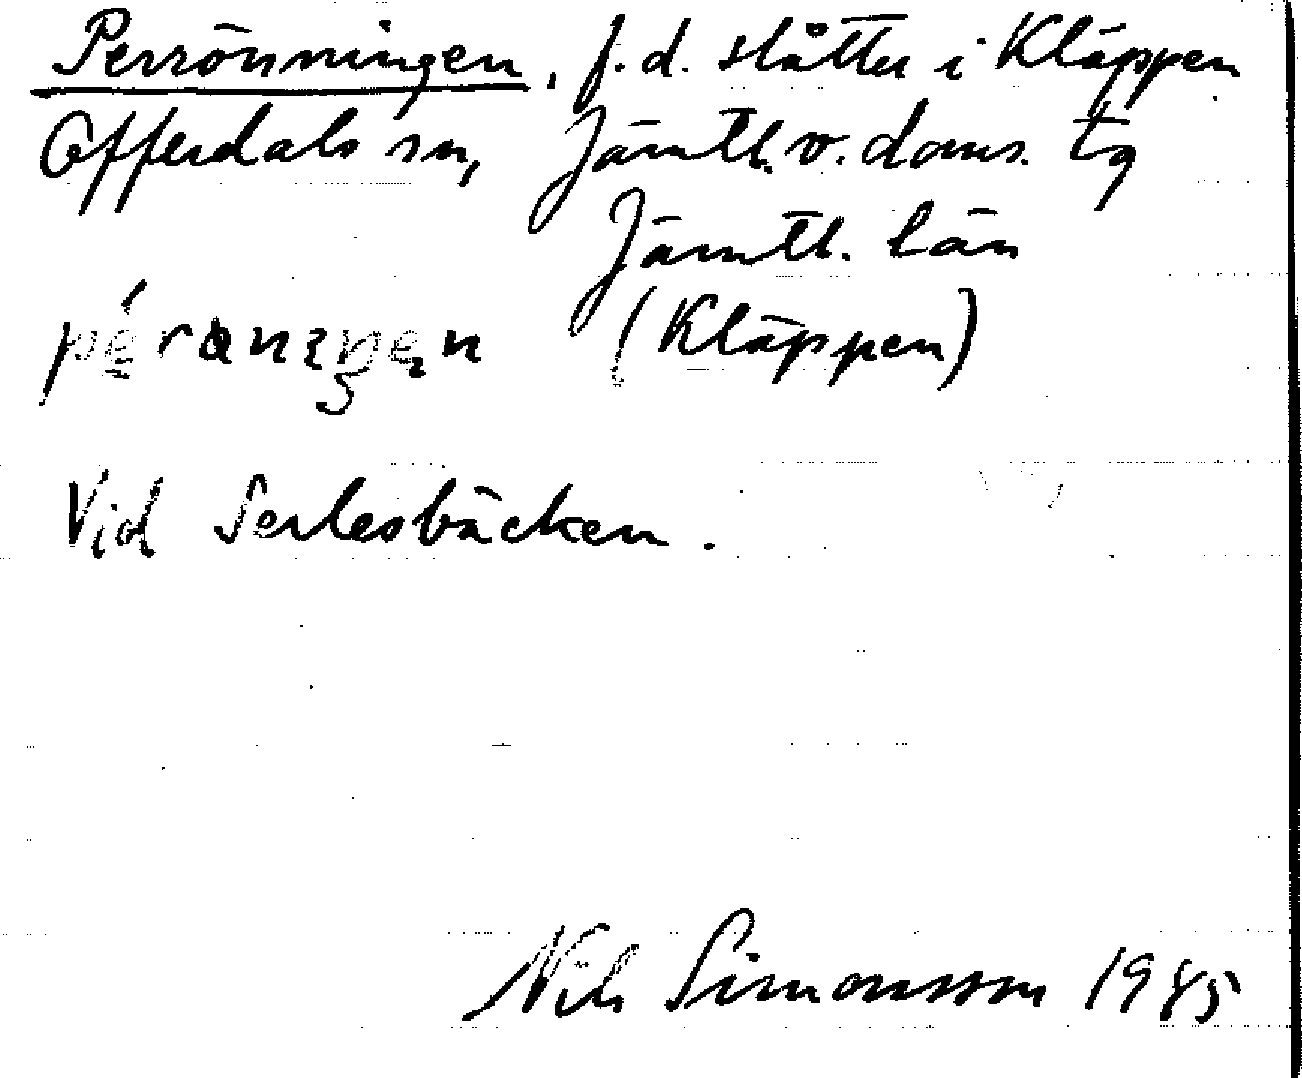 Perrönningen, f.d. slåtter i Kläppen
Offerdals sn, Jämtl. v. doms. tg
Jämtl. län
(Kläppen)
Vid Serlesbäcken.
Nils Simonsson 1985